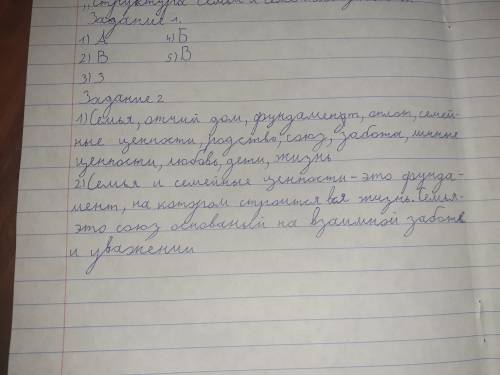 „Структура семьи и
Задание 1.
1) А 4) Б
2) В 5) В
3) З
Задание 2
1) Семья, отчий дом, фундамент, оплот, семей-
ные ценности, родство, союз, забота, личные
ценности, любовь, дети, жизнь
2) Семья и семейные ценности - это фунда-
мент, на котором строится вся жизнь. Семья-
это союз основаный на взаимной заботе
и уважении